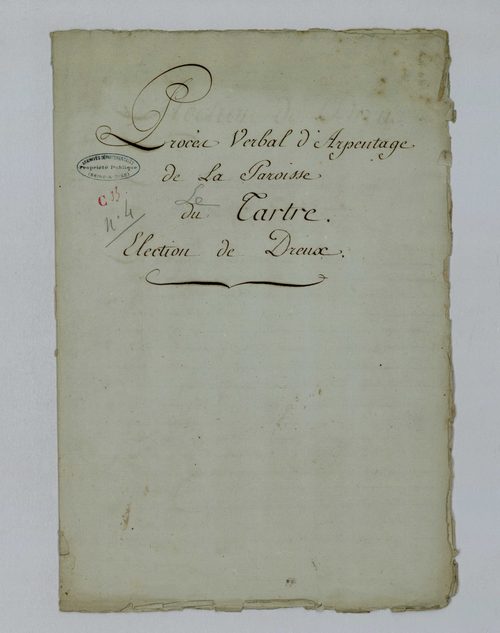 Procès Verbal d'Arpentage
de La Paroisse
Le
du Tartre.
Election de Dreux.
ARCHIVES DÉPARTEMENTALES
Propriété Publique
(SEINE-&-OISE)
C 33
N° 4